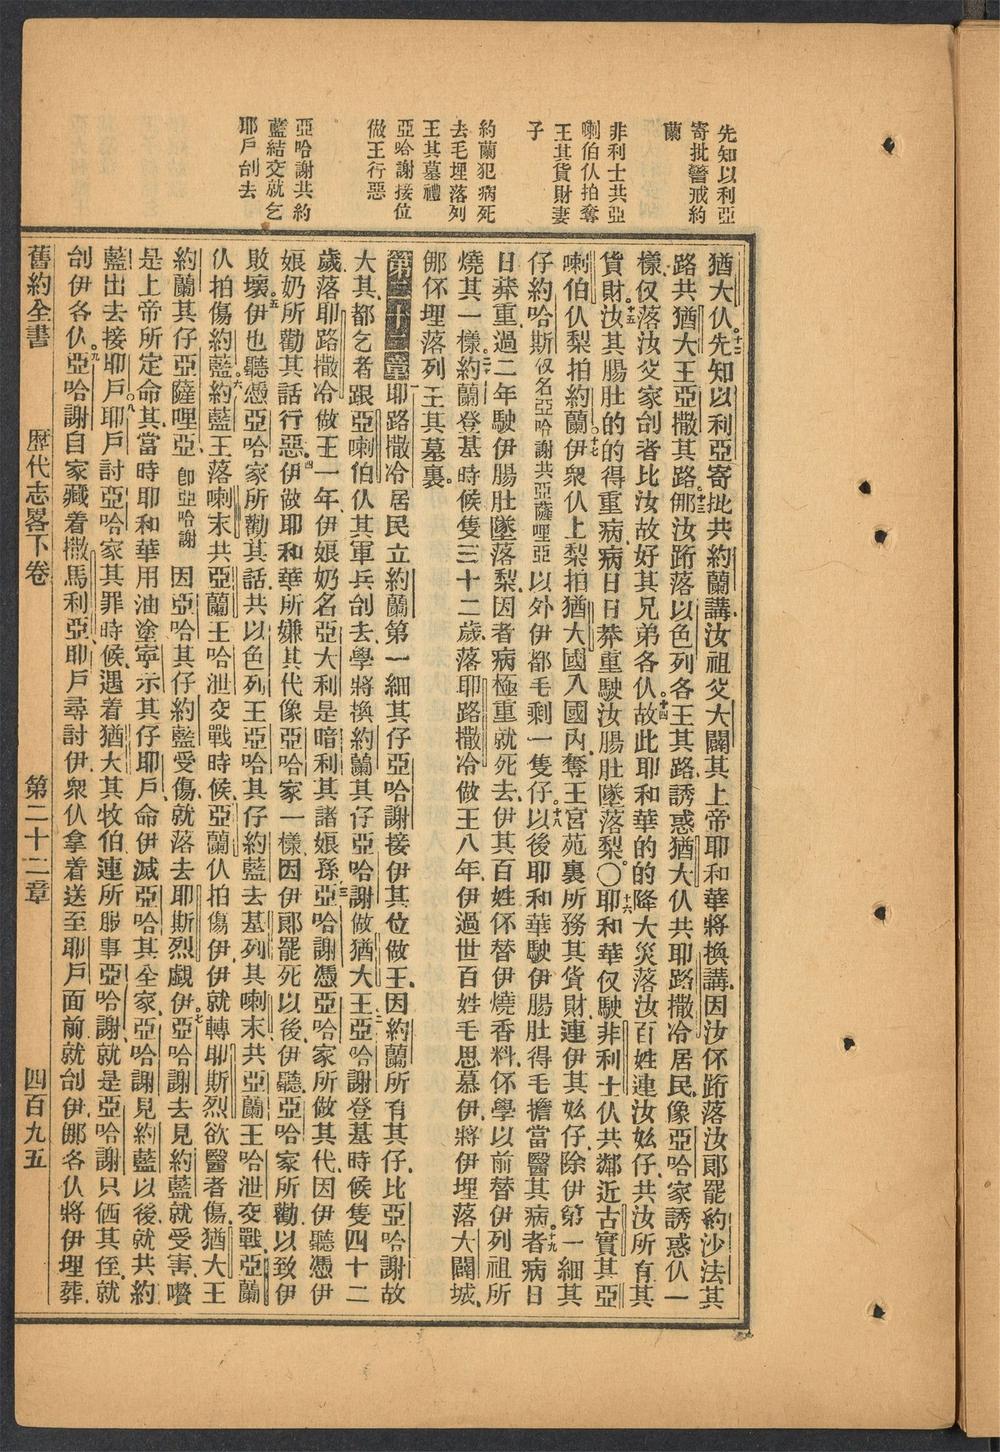 先知以利亞
寄批警戒約
蘭
非利士共亞
喇伯仈拍奪
王其貨財妻
子
約蘭犯病死
去毛埋落列
王其墓禮
亞哈謝接位
做王行惡
亞哈謝共約
藍結交就乞
耶戶刣去
猶大仈十二先知以利亞寄批共約蘭講汝祖父大闢其上帝耶和華將換講因汝伓跡落汝郎罷約沙法其
路共猶大王亞撒其路十三㑚汝跡落以色列各王其路誘惑猶大仈共耶路撒冷居民像亞哈家誘惑仈一
樣仅落汝父家刣者比汝故好其兄弟各仈十四故此耶和華的的降大災落汝百姓連汝妶仔共汝所有其
貨財十五汝其腸肚的的得重病病日日莽重駛汝腸肚墜落梨〇十六耶和華仅駛非利士仈共鄰近古實其亞
喇伯仈梨拍約蘭十七伊衆仈上梨拍猶大國入國內奪王宮苑裏所務其貨財連伊其妶仔除伊第一細其
仔約哈斯仅名亞哈謝共亞薩哩亞以外伊都毛剩一隻仔十八以後耶和華駛伊腸肚得毛擔當醫其病十九者病日
日莽重過二年駛伊腸肚墜落梨因者病極重就死去伊其百姓伓替伊燒香料伓學以前替伊列祖所
燒其一樣二十約蘭登基時候隻三十二歲落耶路撒冷做王八年伊過世百姓毛思慕伊將伊埋落大闢城
㑚伓埋落列王其墓裏
第二十二章一耶路撒冷居民立約蘭第一細其仔亞哈謝接伊其位做王因約蘭所有其仔比亞哈謝故
大其都乞者跟亞喇伯仈其軍兵刣去學將換約蘭其仔亞哈謝做猶大王二亞哈謝登基時候隻四十二
歲落耶路撒冷做王一年伊娘奶名亞大利是暗利其諸娘孫三亞哈謝憑亞哈家所做其代因伊聽憑伊
娘奶所勸其話行惡四伊做耶和華所嫌其代像亞哈家一樣因伊郎罷死以後伊聽亞哈家所勸以致伊
敗壞五伊也聽憑亞哈家所勸其話共以色列王亞哈其仔約藍去基列其喇末共亞蘭王哈泄交戰亞蘭
仈拍傷約藍六約藍王落喇末共亞蘭王哈泄交戰時候亞蘭仈拍傷伊伊就轉耶斯烈欲醫者傷猶大王
約蘭其仔亞薩哩亞即亞哈謝因亞哈其仔約藍受傷就落去耶斯烈覷伊七亞哈謝去見約藍就受害嚽
是上帝所定命其當時耶和華用油塗寧示其仔耶戶命伊滅亞哈其全家亞哈謝見約藍以後就共約
藍出去接耶戶八耶戶討亞哈家其罪時候遇着猶大其牧伯連所服事亞哈謝就是亞哈謝只価其侄就
刣伊各仈九亞哈謝自家藏着撒馬利亞耶戶尋討伊衆仈拿着送至耶戶面前就刣伊㑚各仈將伊埋葬
舊約全書 歷代志畧下卷 第二十二章 四百九五